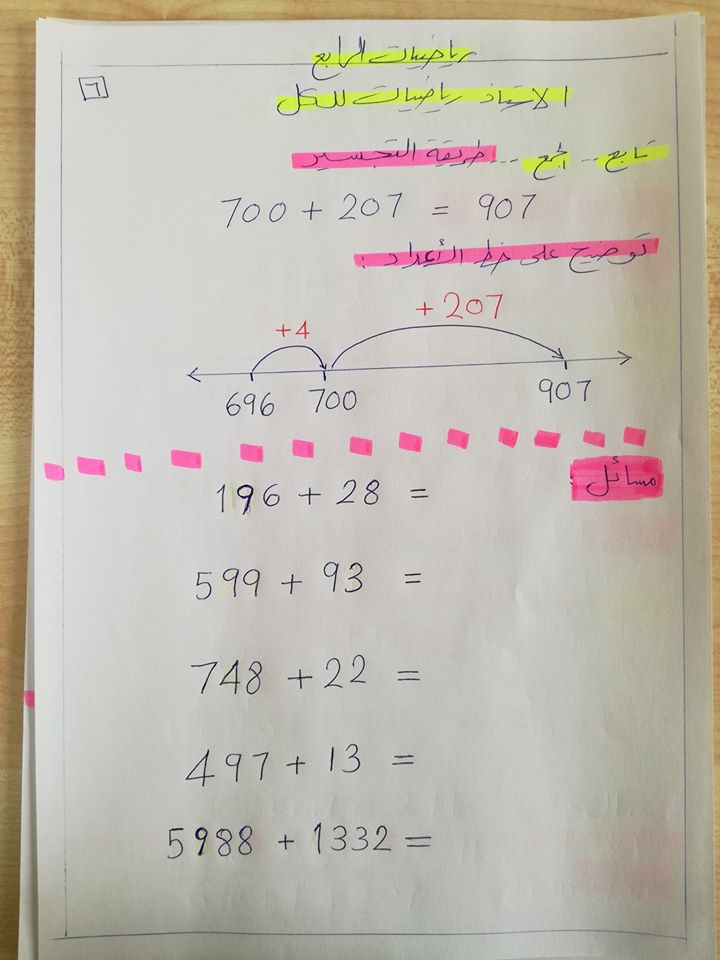 رياضيات الرابع
٦
الاستاذ رياضيات للكل
تابع... الجمع... طريقة التجسير
700 + 207 = 907
توضيح على خط الأعداد :
+4 +207
696 700 907
مسائل :
196 + 28 =
599 + 93 =
748 + 22 =
497 + 13 =
5988 + 1332 =